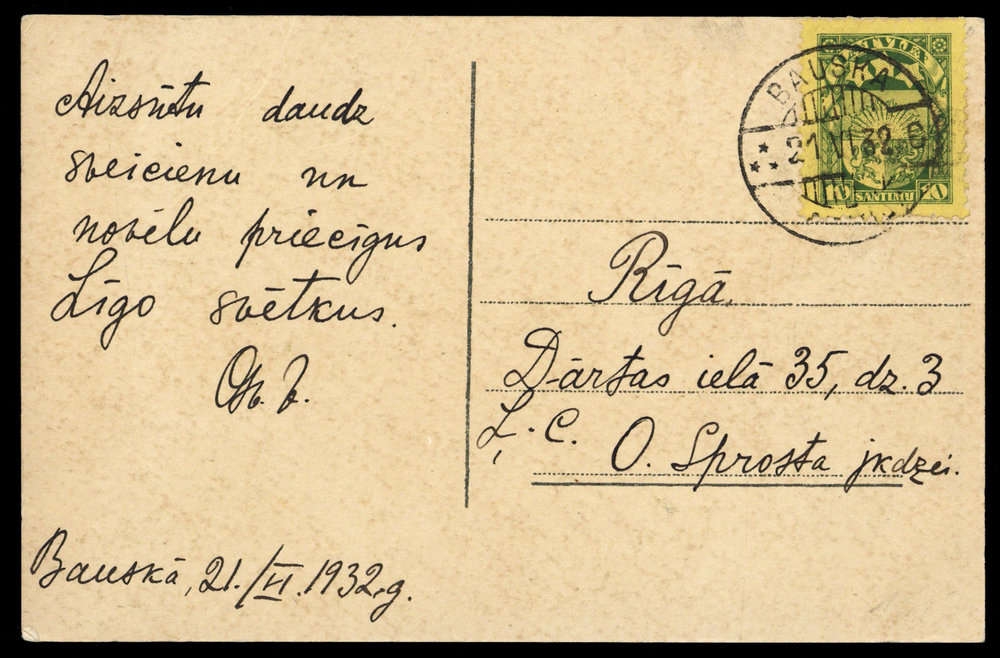 Aizsūtu daudz
sveicienu un
novēlu priecīgus
Līgo svētkus.
Bauskā, 21./VI.1932.g.
LATVIJA
BAUSKA
21.VI.32
10 SANTIMU 10
Rīgā,
Dārtas ielā 35, dz. 3
Ļ. C. O. Sprosta jkdzei.